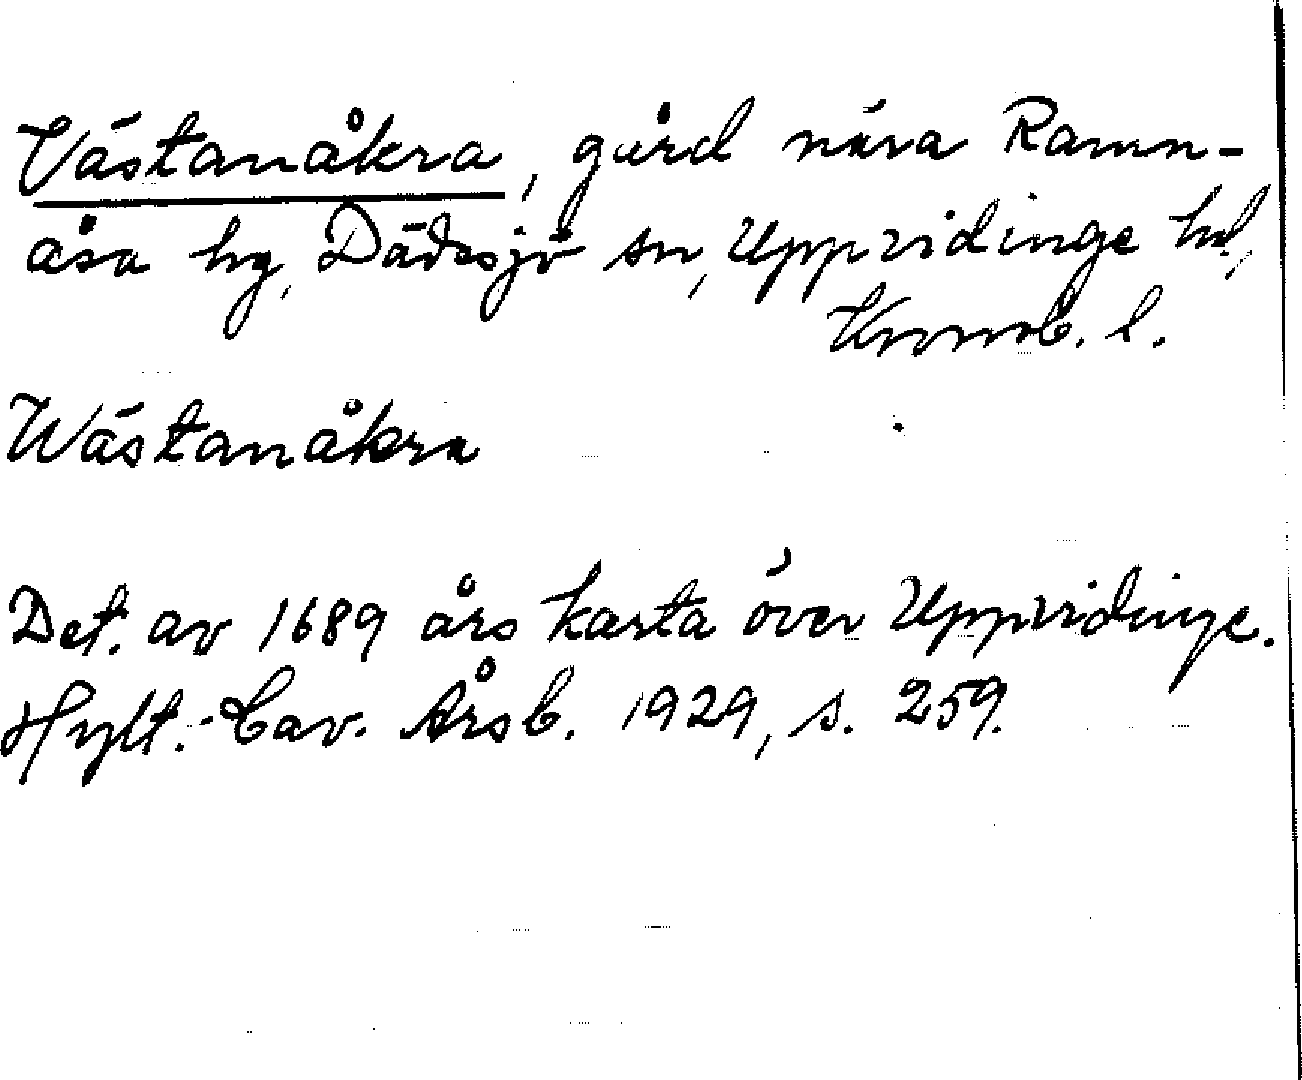 Västanåkra, gård nära Ramn-
åsa hg, Dädesjö sn, Uppvidinge hd,
Kronob. l.
Wästanåkra
Det. av 1689 års karta över Uppvidinge.
Hylt.-Cav. Årsb. 1929, s. 259.